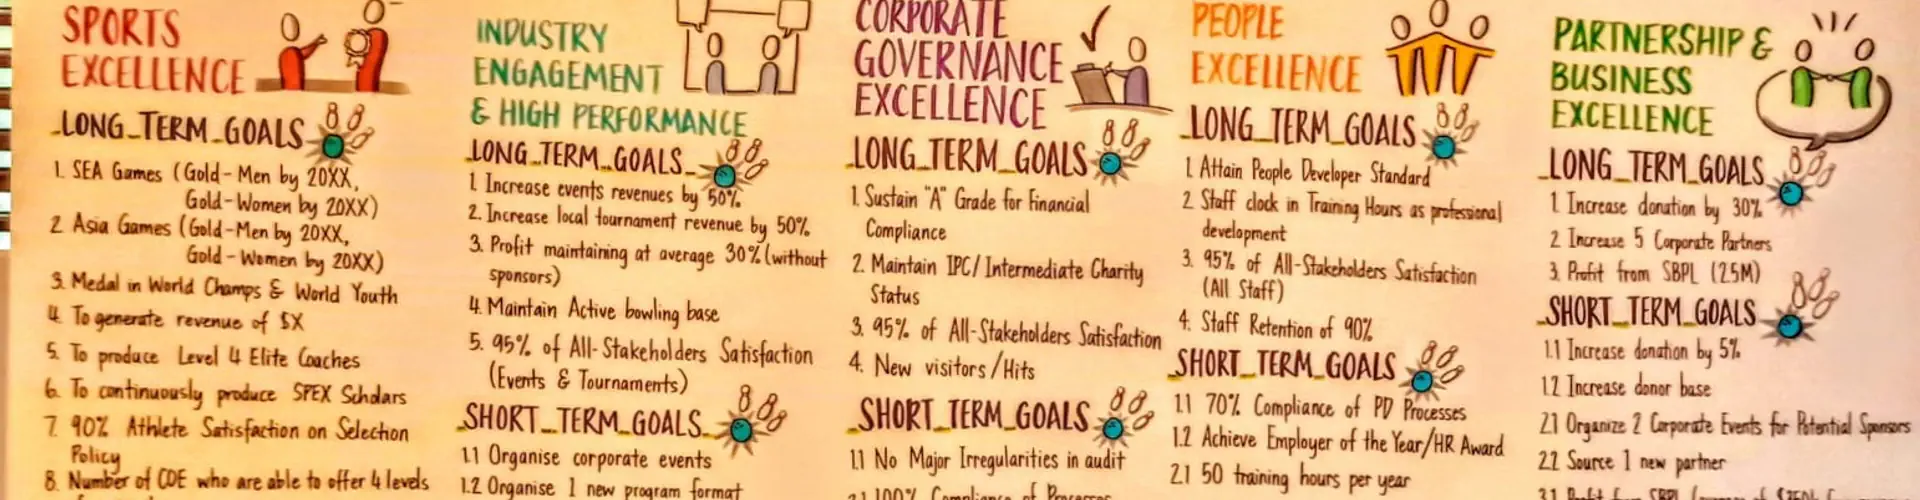 SPORTS
EXCELLENCE
LONG_TERM_GOALS
1. SEA Games (Gold-Men by 20XX,
Gold-Women by 20XX)
2. Asia Games (Gold-Men by 20XX,
Gold-Women by 20XX)
3. Medal in World Champs & World Youth
4. To generate revenue of $X
5. To produce Level 4 Elite Coaches
6. To continuously produce SPEX Scholars
7. 90% Athlete Satisfaction on Selection
Policy
8. Number of COE who are able to offer 4 levels
INDUSTRY
ENGAGEMENT
& HIGH PERFORMANCE
LONG_TERM_GOALS_
1. Increase events revenues by 50%
2. Increase local tournament revenue by 50%
3. Profit maintaining at average 30% (without
sponsors)
4. Maintain Active bowling base
5. 95% of All-Stakeholders Satisfaction
(Events & Tournaments)
SHORT_TERM_GOALS_
1.1 Organise corporate events
1.2 Organise 1 new program format
CORPORATE
GOVERNANCE
EXCELLENCE
LONG_TERM_GOALS
1. Sustain "A" Grade for Financial
Compliance
2. Maintain IPC/Intermediate Charity
Status
3. 95% of All-Stakeholders Satisfaction
4. New visitors/Hits
SHORT_TERM_GOALS
1.1 No Major Irregularities in audit
2.1 100% Compliance of Processes
PEOPLE
EXCELLENCE
LONG_TERM_GOALS
1. Attain People Developer Standard
2. Staff clock in Training Hours as professional
development
3. 95% of All-Stakeholders Satisfaction
(All Staff)
4. Staff Retention of 90%
SHORT_TERM_GOALS
1.1 70% Compliance of PD Processes
1.2 Achieve Employer of the Year/HR Award
2.1 50 training hours per year
PARTNERSHIP &
BUSINESS
EXCELLENCE
LONG_TERM_GOALS
1. Increase donation by 30%
2. Increase 5 Corporate Partners
3. Profit from SBPL (2.5M)
SHORT_TERM_GOALS
1.1 Increase donation by 5%
1.2 Increase donor base
2.1 Organize 2 Corporate Events for Potential Sponsors
2.2 Source 1 new partner
3.1 Profit from SBPL